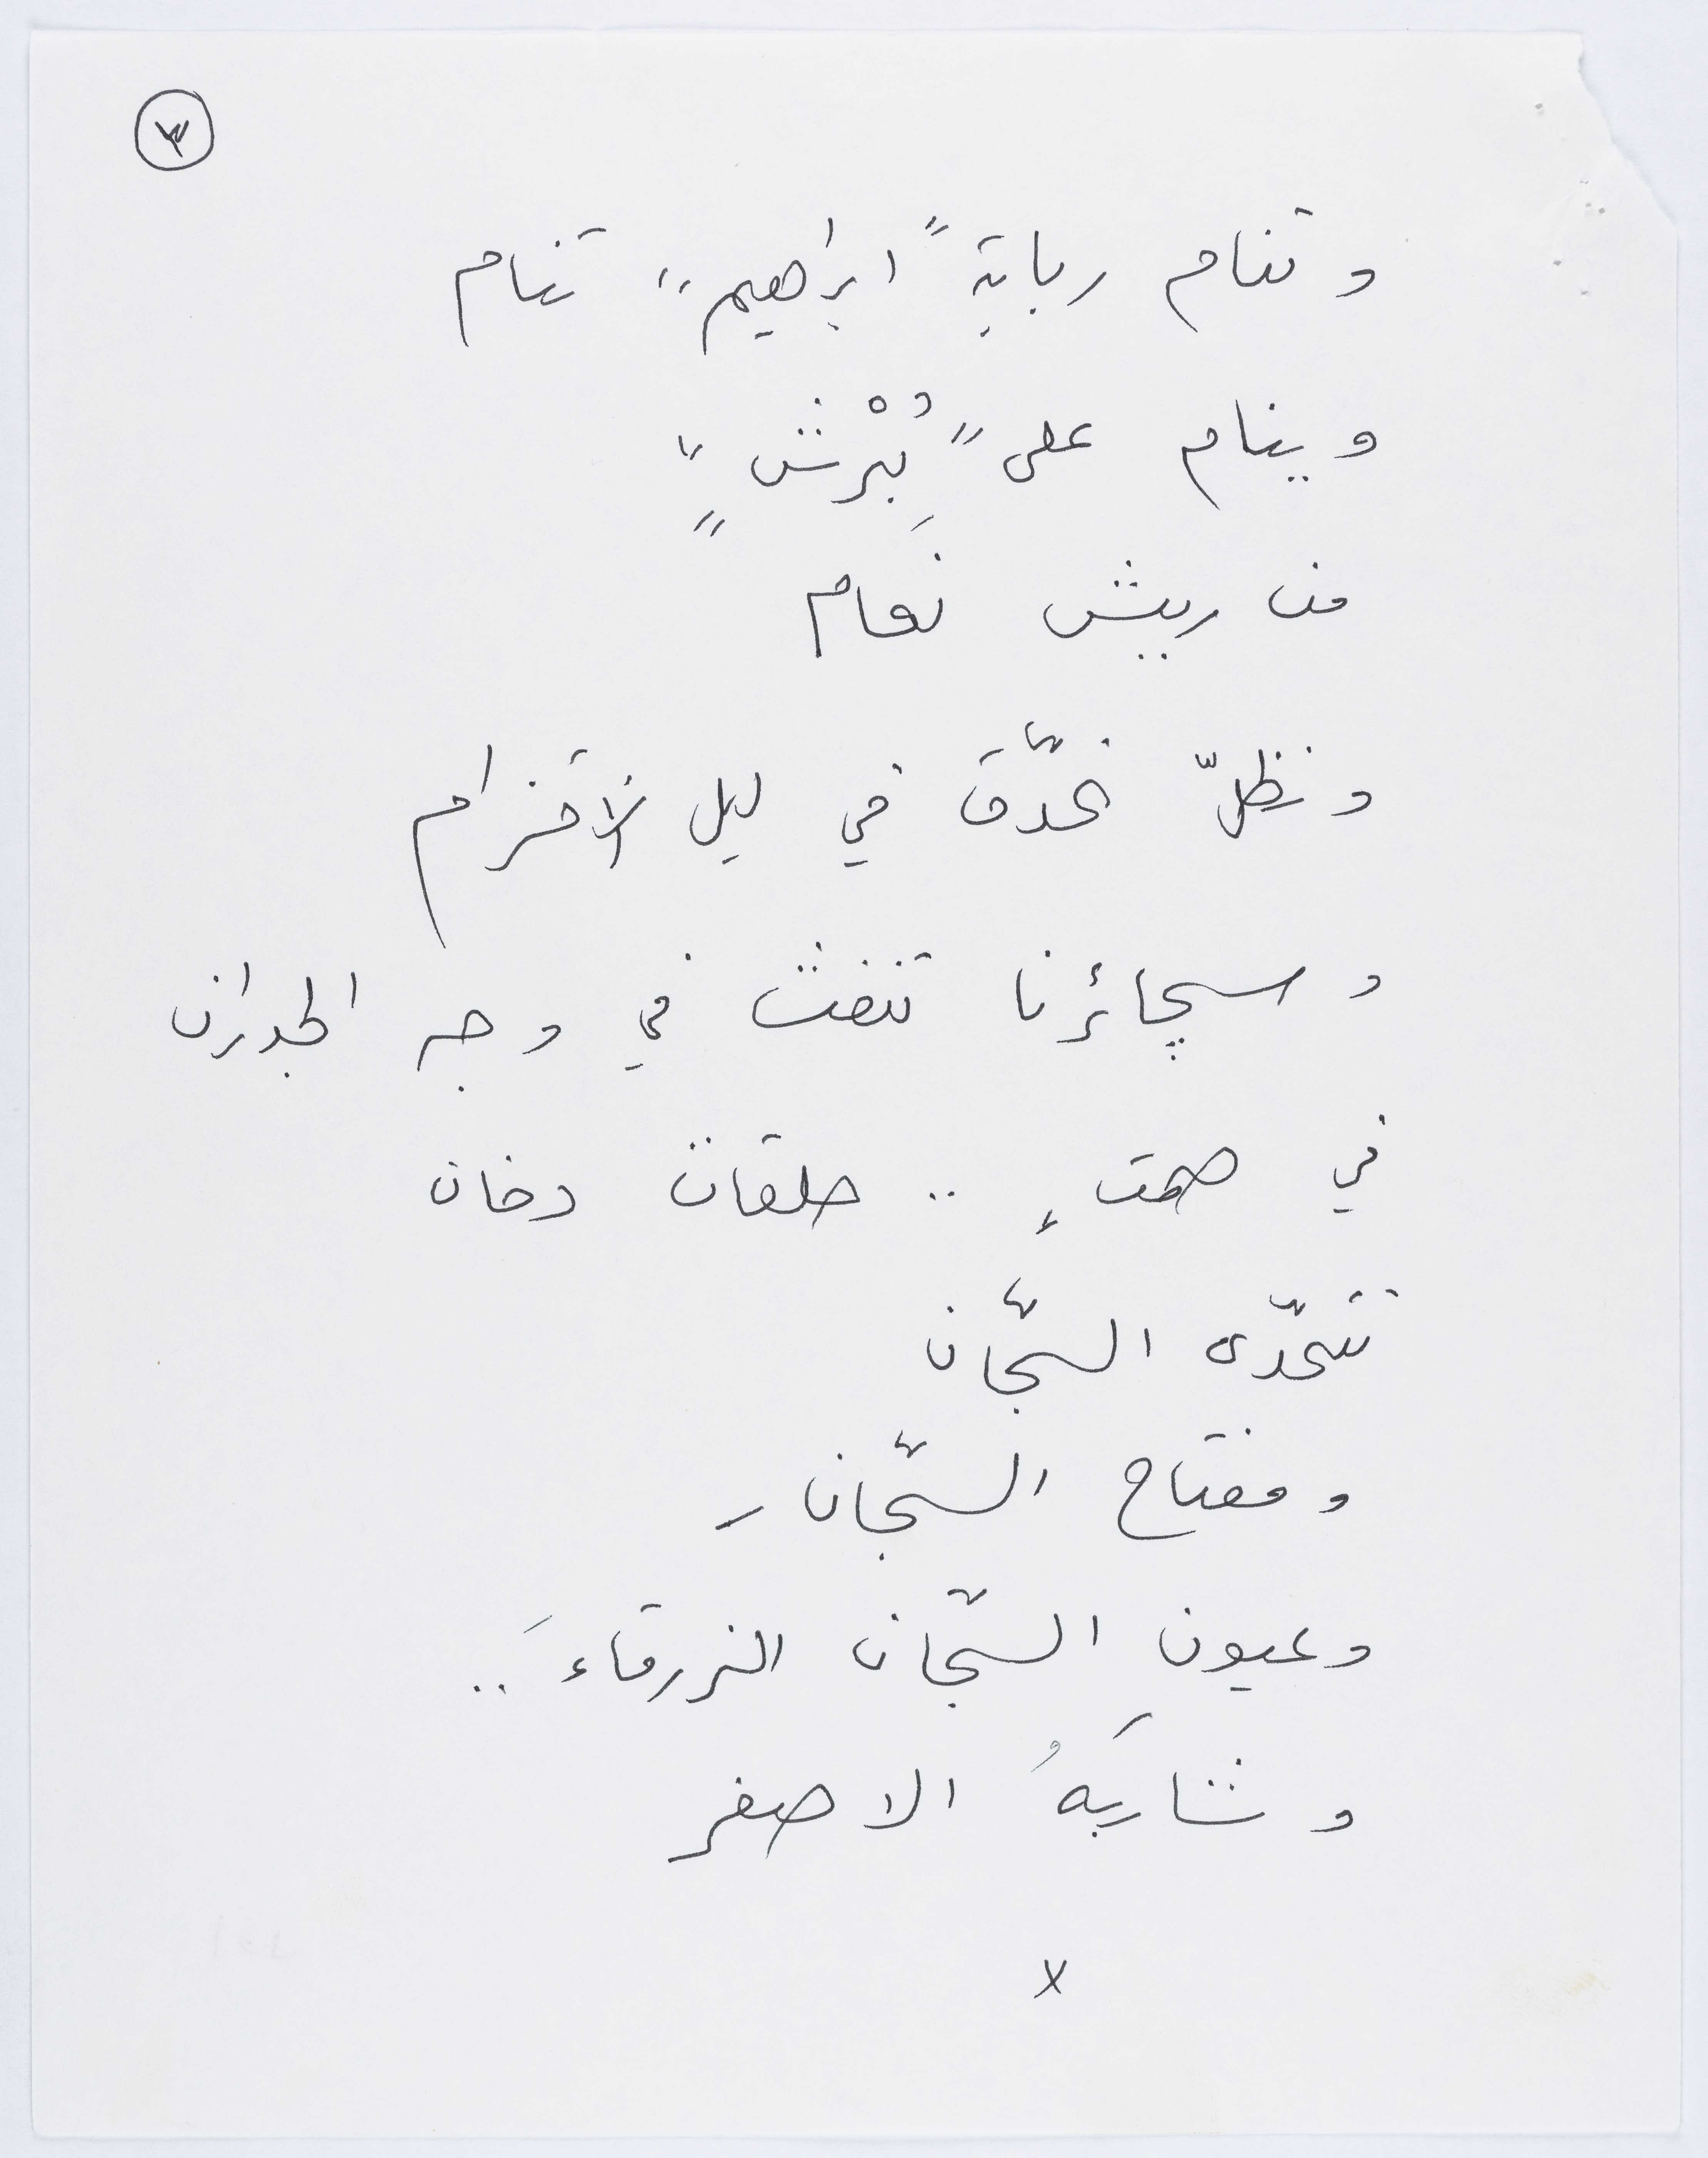 ٣
وتنام ربابة "ابراهيم" تنام
وينام على "بُرْش"
من ريش نَعام
ونظلّ نحدّق في ليل الاقزام
وسجائرنا تنفث في وجه الجدران
في صمتٍ .. حلقات دخان
تتحدّى السجّان
ومفتاح السجّان -
وعيونِ السجّان الزرقاءَ ..
وشاربَهُ الاصفر
x